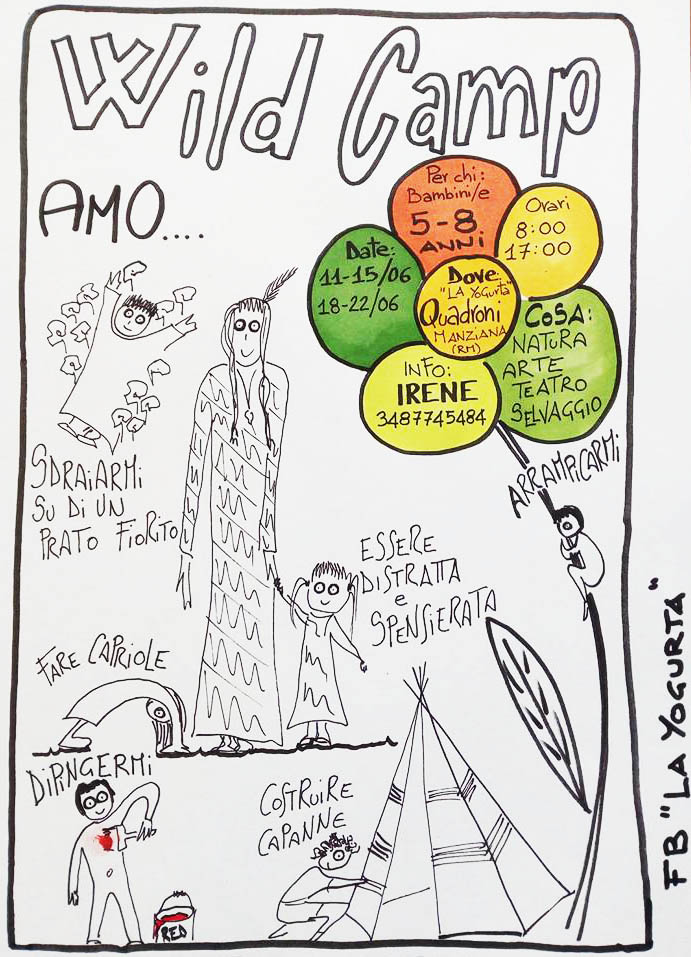 Wild Camp
AMO....
Per chi:
Bambini/e
5-8
ANNI
Orari
8:00
17:00
Date:
11-15/06
18-22/06
Dove:
"LA YOGURTA"
Quadroni
MANZIANA
(RM)
COSA:
NATURA
ARTE
TEATRO
SELVAGGIO
INFO:
IRENE
3487745484
ARRAMPICARMI
SDRAIARMI
SU DI UN
PRATO FIORITO
ESSERE
DISTRATTA
e
SPENSIERATA
FARE CAPRIOLE
DIPINGERMI
COSTRUIRE
CAPANNE
RED
FB "LA YOGURTA"